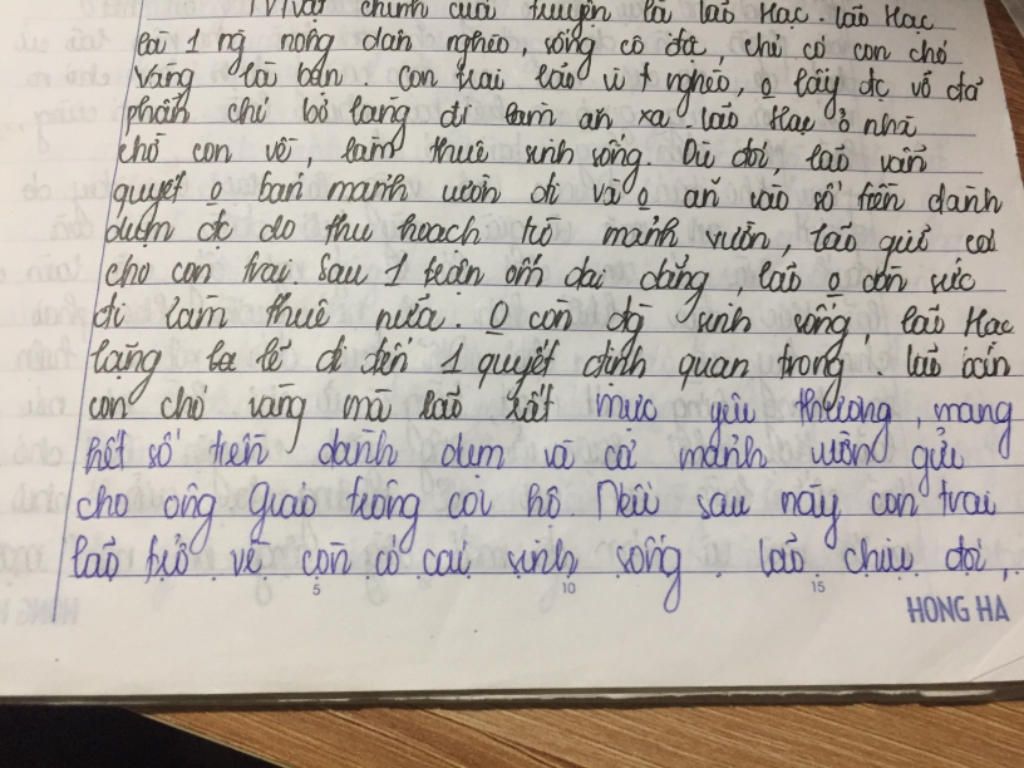 chính của truyện là lão Hạc. lão Hạc
là 1 ng nông dân nghèo, sống cô độc, chỉ có con chó
vàng là bạn. con trai lão vì nghèo, o lấy đc vợ đã
phẫn chí bỏ làng đi làm ăn xa. lão Hạc ở nhà
chờ con về, làm thuê sinh sống. Dù đói, lão vẫn
quyết o bán mảnh vườn đi và o ăn vào số tiền dành
dụm đc do thu hoạch từ mảnh vườn, lão giữ cả
cho con trai. Sau 1 trận ốm dai dẳng lão o còn sức
đi làm thuê nữa. O còn đg sinh sống lão Hạc
lặng lẽ đi đến 1 quyết định quan trọng: lão bán
con chó vàng mà lão rất mực yêu thương, mang
hết số tiền dành dụm và cả mảnh vườn gửi
cho ông giáo trông coi hộ. Nếu sau này con trai
lão trở về còn có cái sinh sống. lão chịu đói,
5 10 15
HONG HA